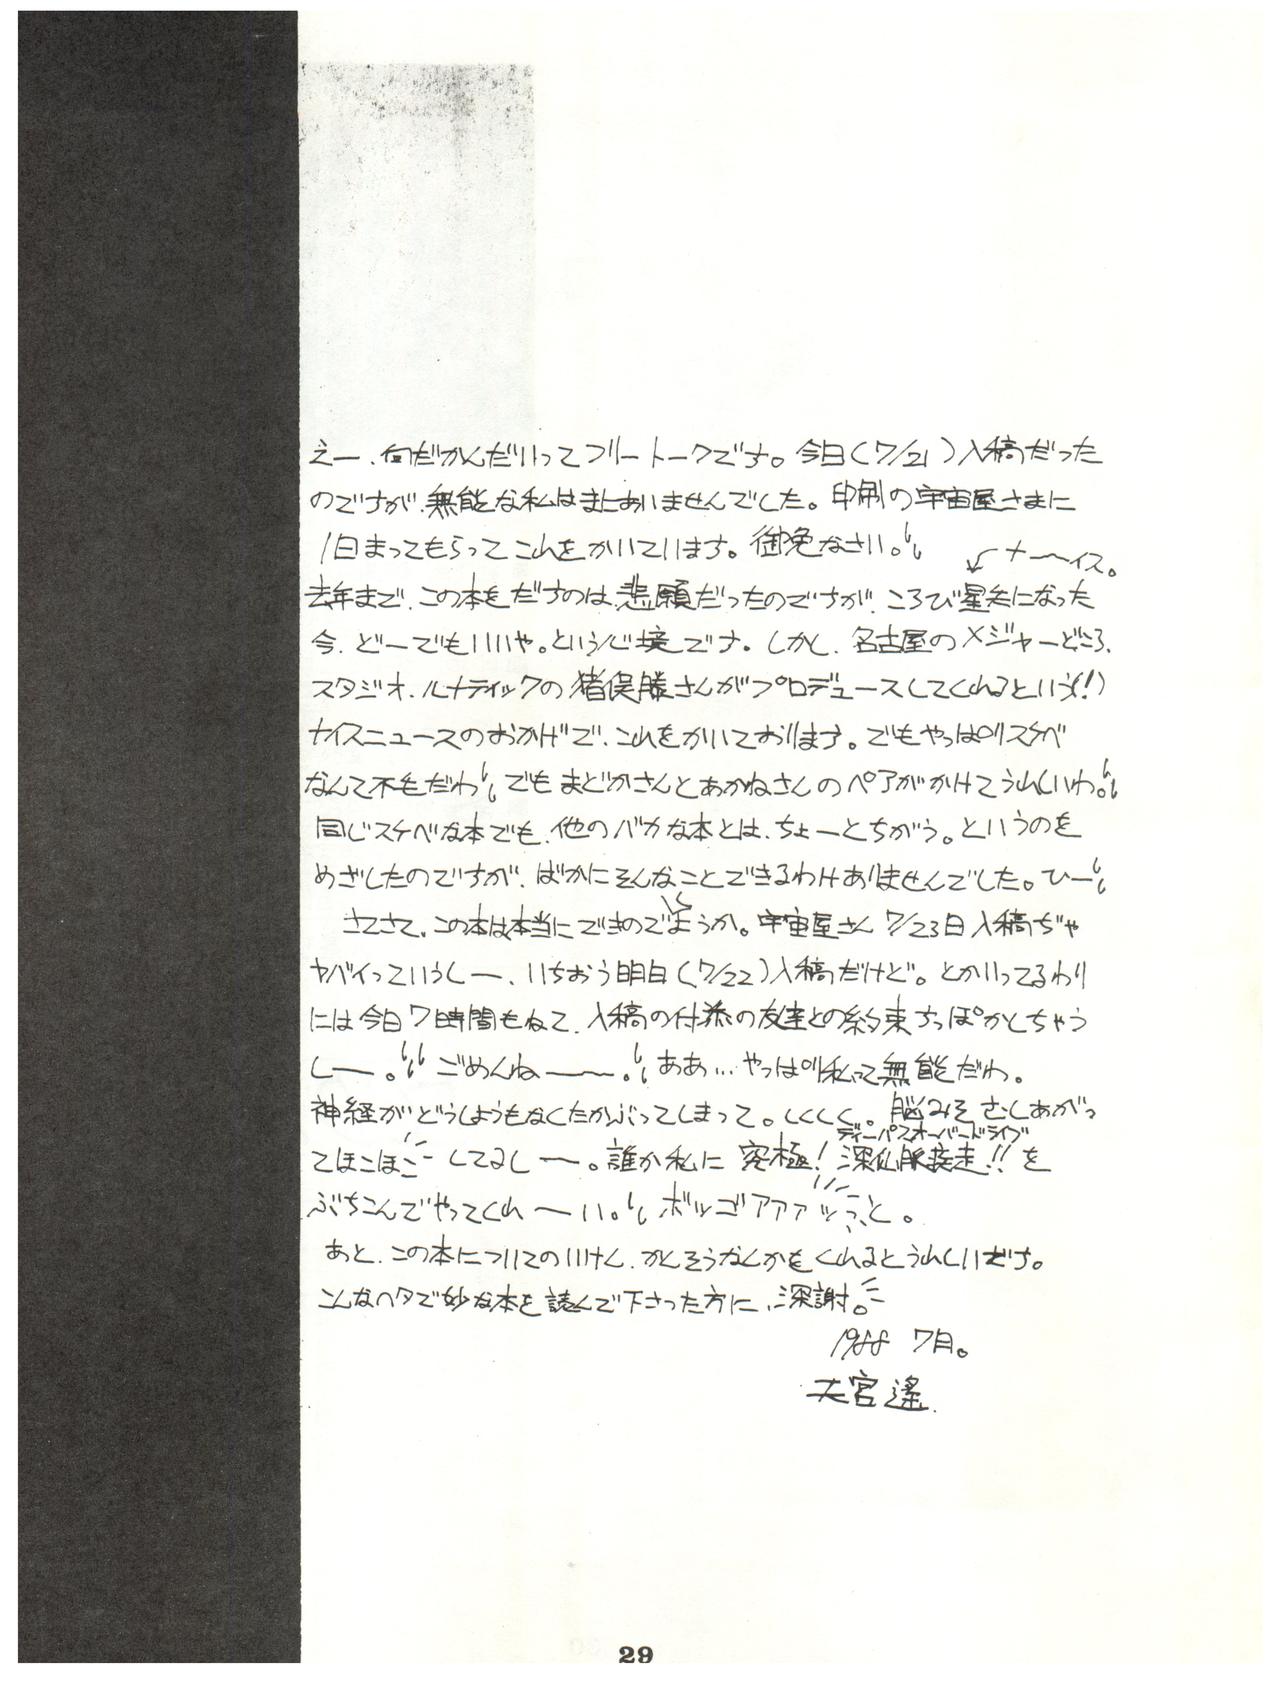 えー、何だかんだいってフリートークです。今日(7/21)入稿だった
のですが、無能な私はまにあいませんでした。印刷の宇宙屋さまに
1日まってもらってこれをかいています。御免なさい。
ナ〜〜イス。
去年まで、この本をだすのは、悲願だったのですが、ころび星矢になった
今、どーでもいいや。という心境です。しかし、名古屋のメジャーどころ、
スタジオ・ルナティックの猪俣勝さんがプロデュースしてくれるという(!)
ナイスニュースのおかげで、これをかいております。でもやっぱりスケベ
なんて不毛だわ でもまどかさんとあかねさんのペアがかけてうれしいわ。
同じスケベな本でも、他のバカな本とは、ちょーとちがう。というのを
めざしたのですが、ばかにそんなことできるわけありませんでした。ひー
さてさて、この本は本当にできのでしょうか。宇宙屋さん 7/23日入稿ぢゃ
ヤバイっていうしー、いちおう明日(7/22)入稿だけど。とかいってるわり
には今日7時間もねて、入稿の付添の友達との約束すっぽかしちゃう
しー。ごめんね〜〜。ああ…やっぱり私って無能だわ。
神経がどうしようもなくたかぶってしまって。しくしく。脳みそさしあがっ
てほこほこしてるしー。誰か私に 究極!
ディーパスオーバードライブ
を
ぶちこんでやってくれ〜い。ボッゴアァァッっと。
あと、この本についてのいけん、かんそうなんかをくれるとうれしいだす。
こんなヘタで妙な本を読んで下さった方に、深謝。
1988 7月。
大宮遙.
29